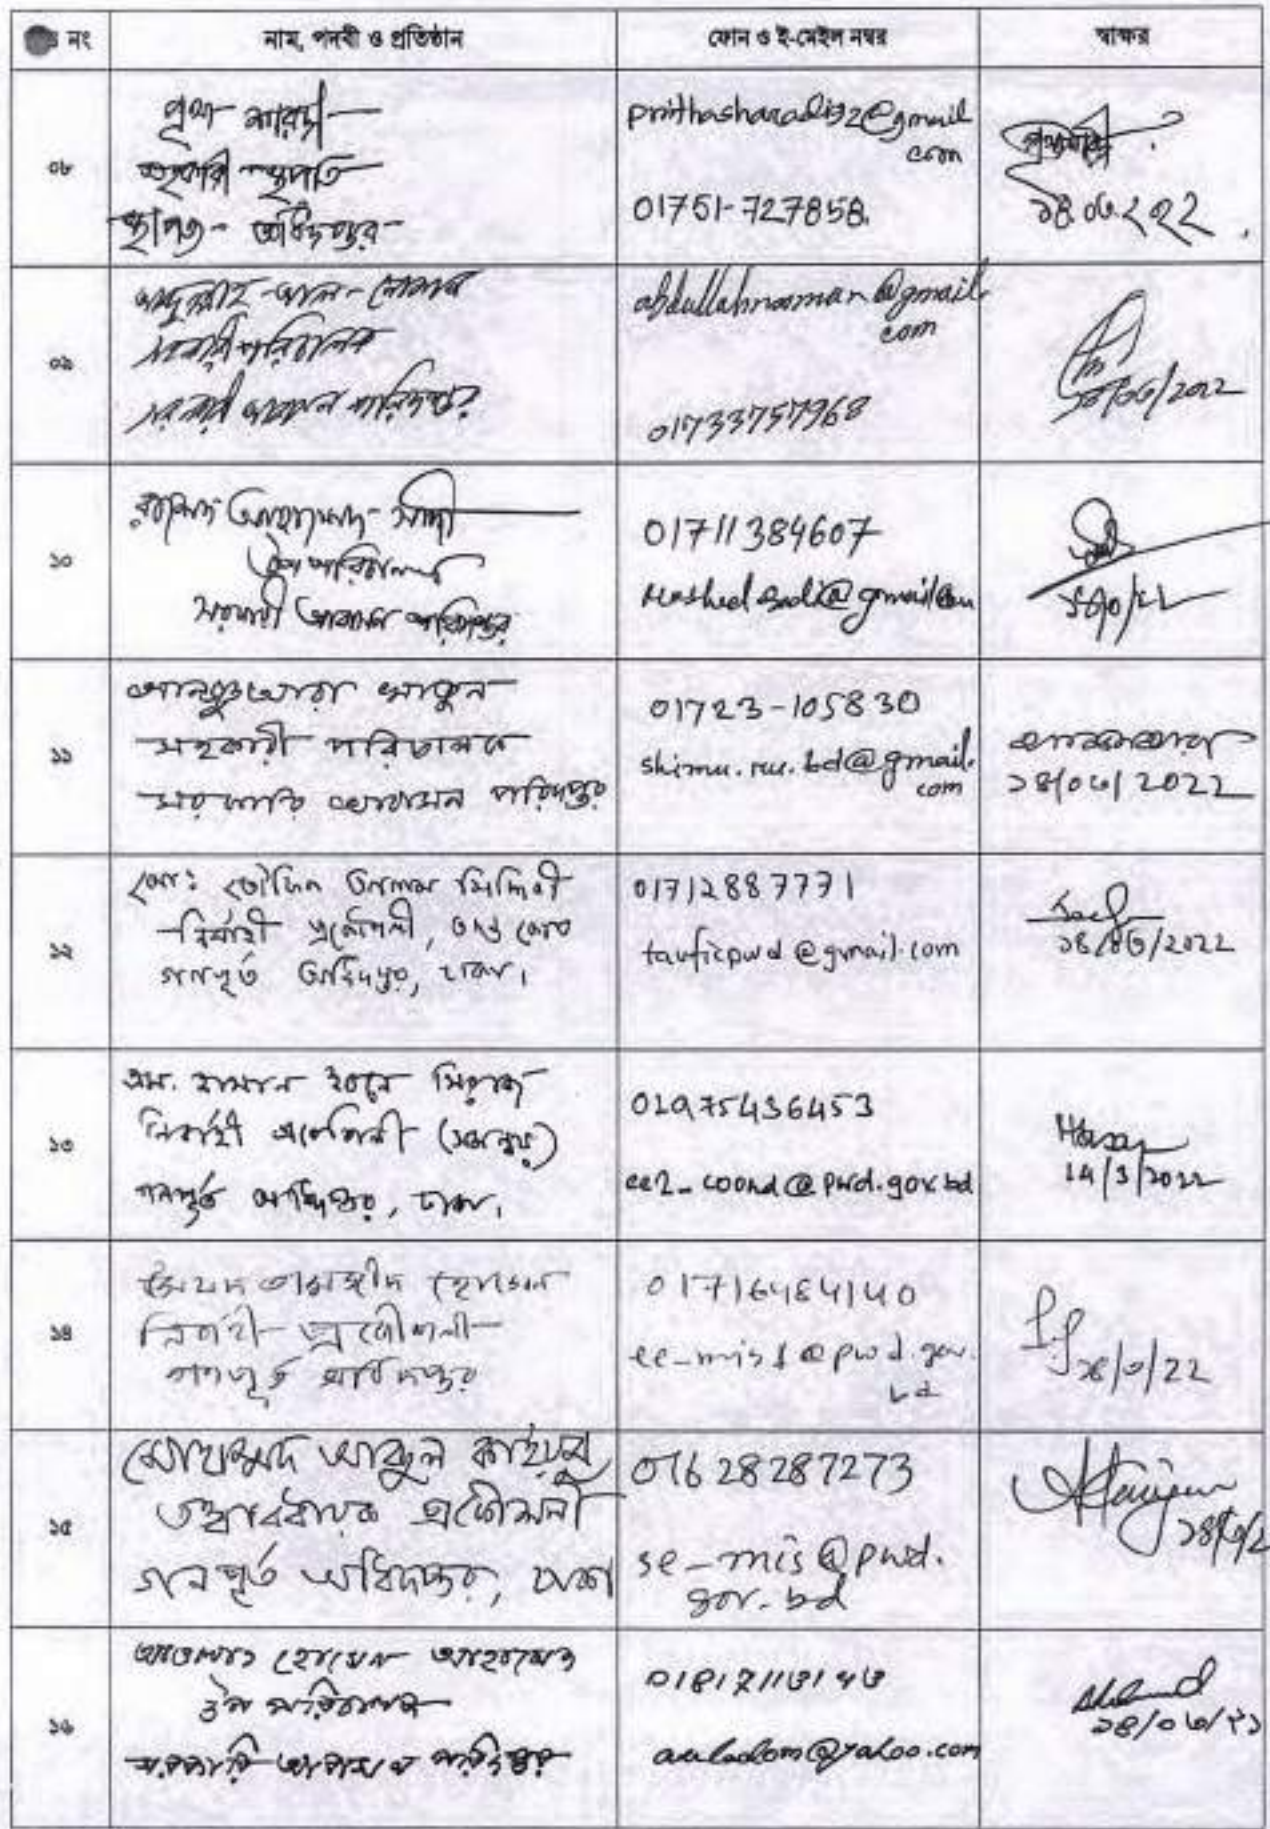 নং
নাম, পদবী ও প্রতিষ্ঠান
ফোন ও ই-মেইল নম্বর
স্বাক্ষর
০৮
পৃথা শারদী
সহকারী স্থপতি
স্থাপত্য অধিদপ্তর
prithasharadi92@gmail
com
01751-727858.
১৪.০৩.২০২২
০৯
আব্দুল্লাহ-আল-নোমান
সহকারী পরিচালক
সরকারী আবাসন পরিদপ্তর
abdullahnooman@gmail.
com
01733757968
১৪/০৩/2022
১০
রাশেদ আহাম্মেদ সাদী
উপ পরিচালক
সরকারী আবাসন পরিদপ্তর
01711384607
১১
খাতুন
সহকারী পরিচালক
সরকারি আবাসন পরিদপ্তর
01723-105830
shimu.ru.bd@gmail.
com
১৪/০৩/2022
১২
মো: তৌফিক আলম সিদ্দিকী
নির্বাহী প্রকৌশলী,
গণপূর্ত অধিদপ্তর, ঢাকা।
01712887771
tauficpwd@gmail.com
১৪/০৩/2022
১৩
এম. হাসান ইবনে সিরাজ
নির্বাহী প্রকৌশলী (সমন্বয়)
গণপূর্ত অধিদপ্তর, ঢাকা।
01975436453
ee2_coord@pwd.gov.bd
Hasan
14/3/2022
১৪
সৈয়দ তামজীদ হোসেন
নির্বাহী প্রকৌশলী
গণপূর্ত অধিদপ্তর
01716484140
ee_mis1@pwd.gov.
bd
১৪/৩/22
১৫
মোহাম্মদ আব্দুল কাইয়ুম
তত্ত্বাবধায়ক প্রকৌশলী
গনপূর্ত অধিদপ্তর, ঢাকা
01628287273
se_mis@pwd.
gov.bd
১৬
আওলাদ হোসেন আহমেদ
উপ পরিচালক
সরকারি আবাসন পরিদপ্তর
auladom@yahoo.com